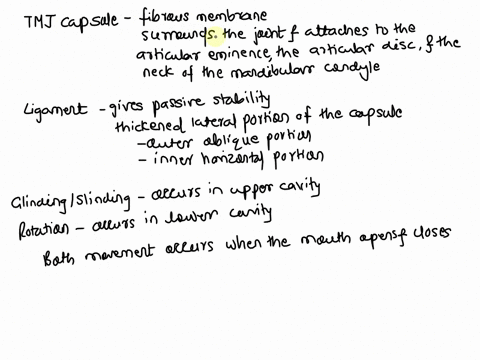 TMJ capsule - fibrous membrane
surrounds the joint & attaches to the
articular eminence, the articular disc, & the
neck of the mandibular condyle
Ligament - gives passive stability
thickened lateral portion of the capsule
- outer oblique portion
- inner horizontal portion
Glinding/Slinding - occurs in upper cavity
Rotation - occurs in lower cavity
Both movement occurs when the mouth opens & closes